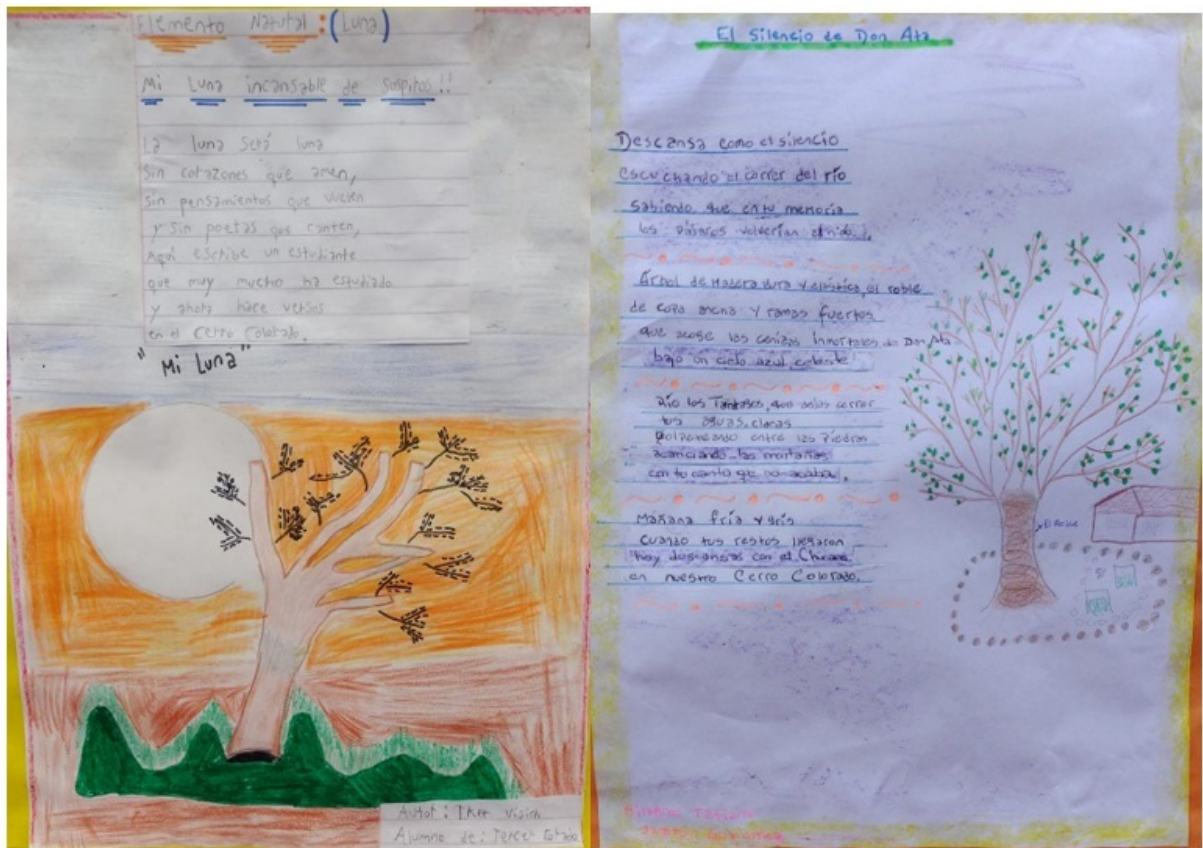 Elemento Natural : (Luna)
Mi Luna incansable de suspiros!!
La luna será luna
Sin corazones que amen,
sin pensamientos que vuelen
y sin poetas que canten,
Aquí escribe un estudiante
que muy mucho ha estudiado
y ahora hace versos
en el Cerro Colorado.
"Mi Luna"
Autor : Iker
Alumno de : Tercer Grado
El Silencio de Don Ata
Descansa como el silencio
escuchando el correr del río
Sabiendo que en tu memoria
los pájaros volverían al nido.
Árbol de Madera dura y elástica, el roble
de copa ancha y ramas fuertes
que acoge las cenizas Inmortales de Don Ata
bajo un cielo azul celeste
Río los Tártagos, que dejas correr
tus aguas claras
golpeteando entre las Piedras
acariciando las montañas
con tu canto que no acaba.
Mañana fría y gris
cuando tus restos llegaron
hoy descansas con el Chúcaro
en nuestro Cerro Colorado.
El Roble